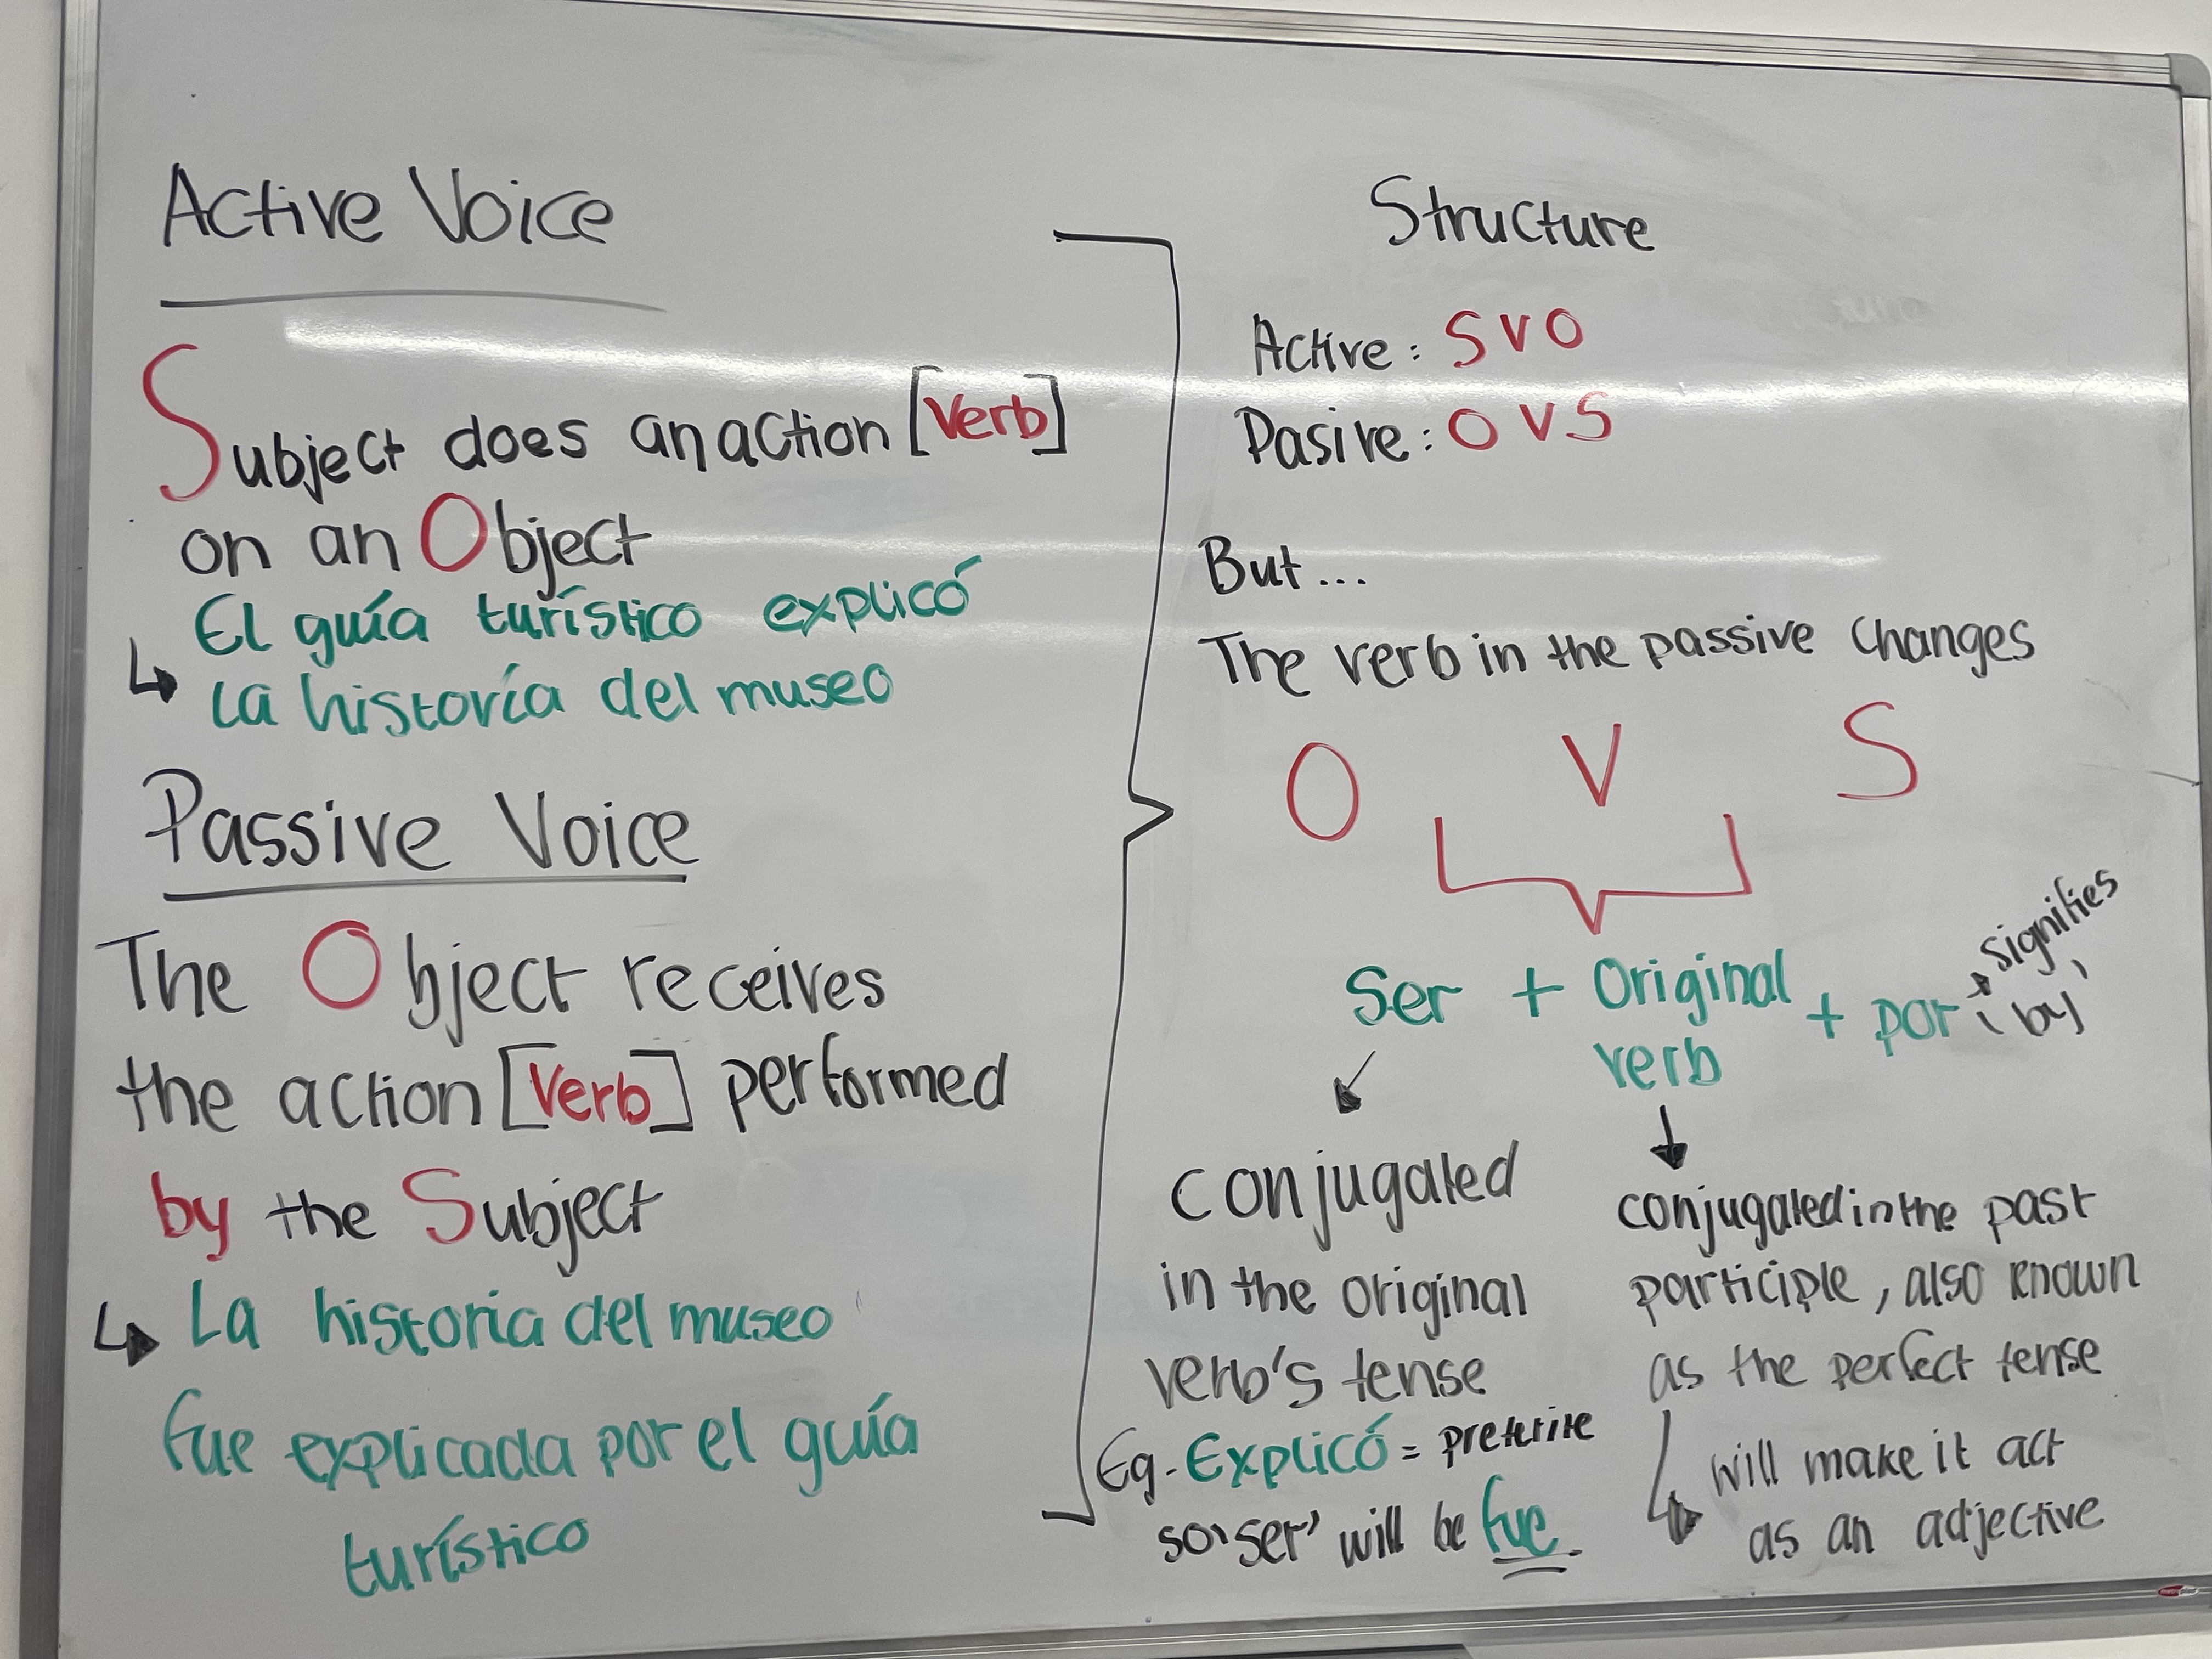 Active Voice
Subject does an action [Verb]
on an Object
El guía turístico explicó
↳ la historía del museo
Passive Voice
The Object receives
the action [Verb] performed
by the Subject
↳ La historia del museo
fue explicada por el guía
turístico
Structure
Active: SVO
Pasive: OVS
But...
The verb in the passive changes
O V S
Ser + Original verb + por → signifies 'by'
conjugated
in the original
verb's tense
Eg. Explicó = preterite
so 'ser' will be fue.
conjugated in the past
participle, also known
as the perfect tense
↳ will make it act
as an adjective